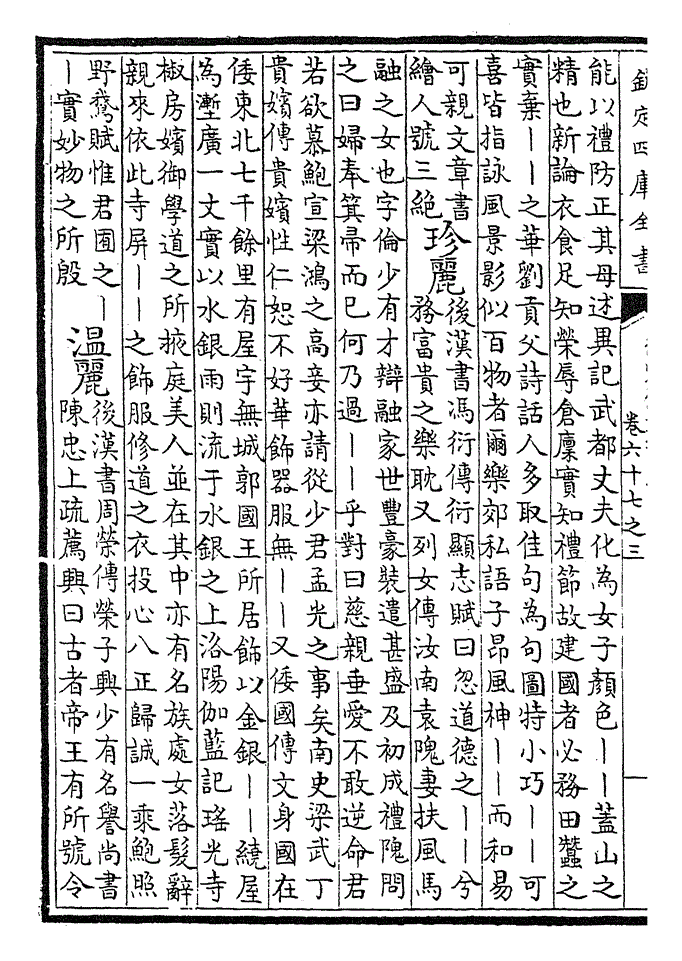 欽定四庫全書
卷六十七之三
能以禮防正其母述異記武都丈夫化為女子顏色||蓋山之
精也新論衣食足知榮辱倉廩實知禮節故建國者必務田蠶之
實棄||之華劉貢父詩話人多取佳句為句圖特小巧||可
喜皆指詠風景影似百物者爾樂郊私語子昂風神||而和易
可親文章書
繪人號三絕
珍麗
後漢書馮衍傳衍顯志賦曰忽道德之||兮
務富貴之樂耽又列女傳汝南袁隗妻扶風馬
融之女也字倫少有才辯融家世豐豪裝遣甚盛及初成禮隗問
之曰婦奉箕帚而已何乃過||乎對曰慈親垂愛不敢逆命君
若欲慕鮑宣梁鴻之高妾亦請從少君孟光之事矣南史梁武丁
貴嬪傳貴嬪性仁恕不好華飾器服無||又倭國傳文身國在
倭東北七千餘里有屋宇無城郭國王所居飾以金銀||繞屋
為壍廣一丈實以水銀雨則流于水銀之上洛陽伽藍記瑤光寺
椒房嬪御學道之所掖庭美人並在其中亦有名族處女落髮辭
親來依此寺屏||之飾服修道之衣投心八正歸誠一乘鮑照
野鵞賦惟君囿之|
|實妙物之所殷
溫麗
後漢書周榮傳榮子興少有名譽尚書
陳忠上疏薦興曰古者帝王有所號令
一